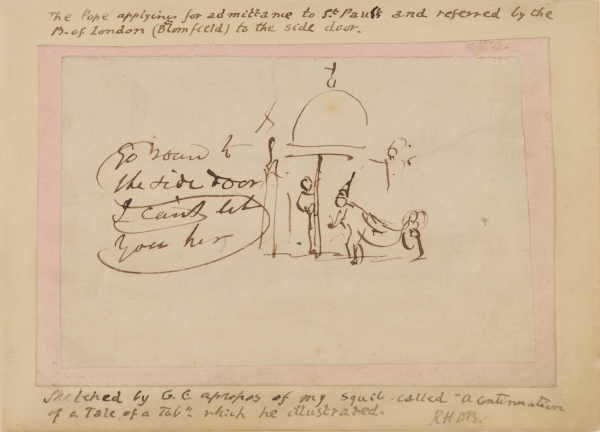 The Pope applying for admittance to St. Paul's and referred by the
B. of London (Blomfield) to the side door.
Go roun to
the side door
I can't let
you her
Sketched by G.C. apropos of my squib called "A Continuation
of a Tale of a Tub". which he illustrated.
RHDB.